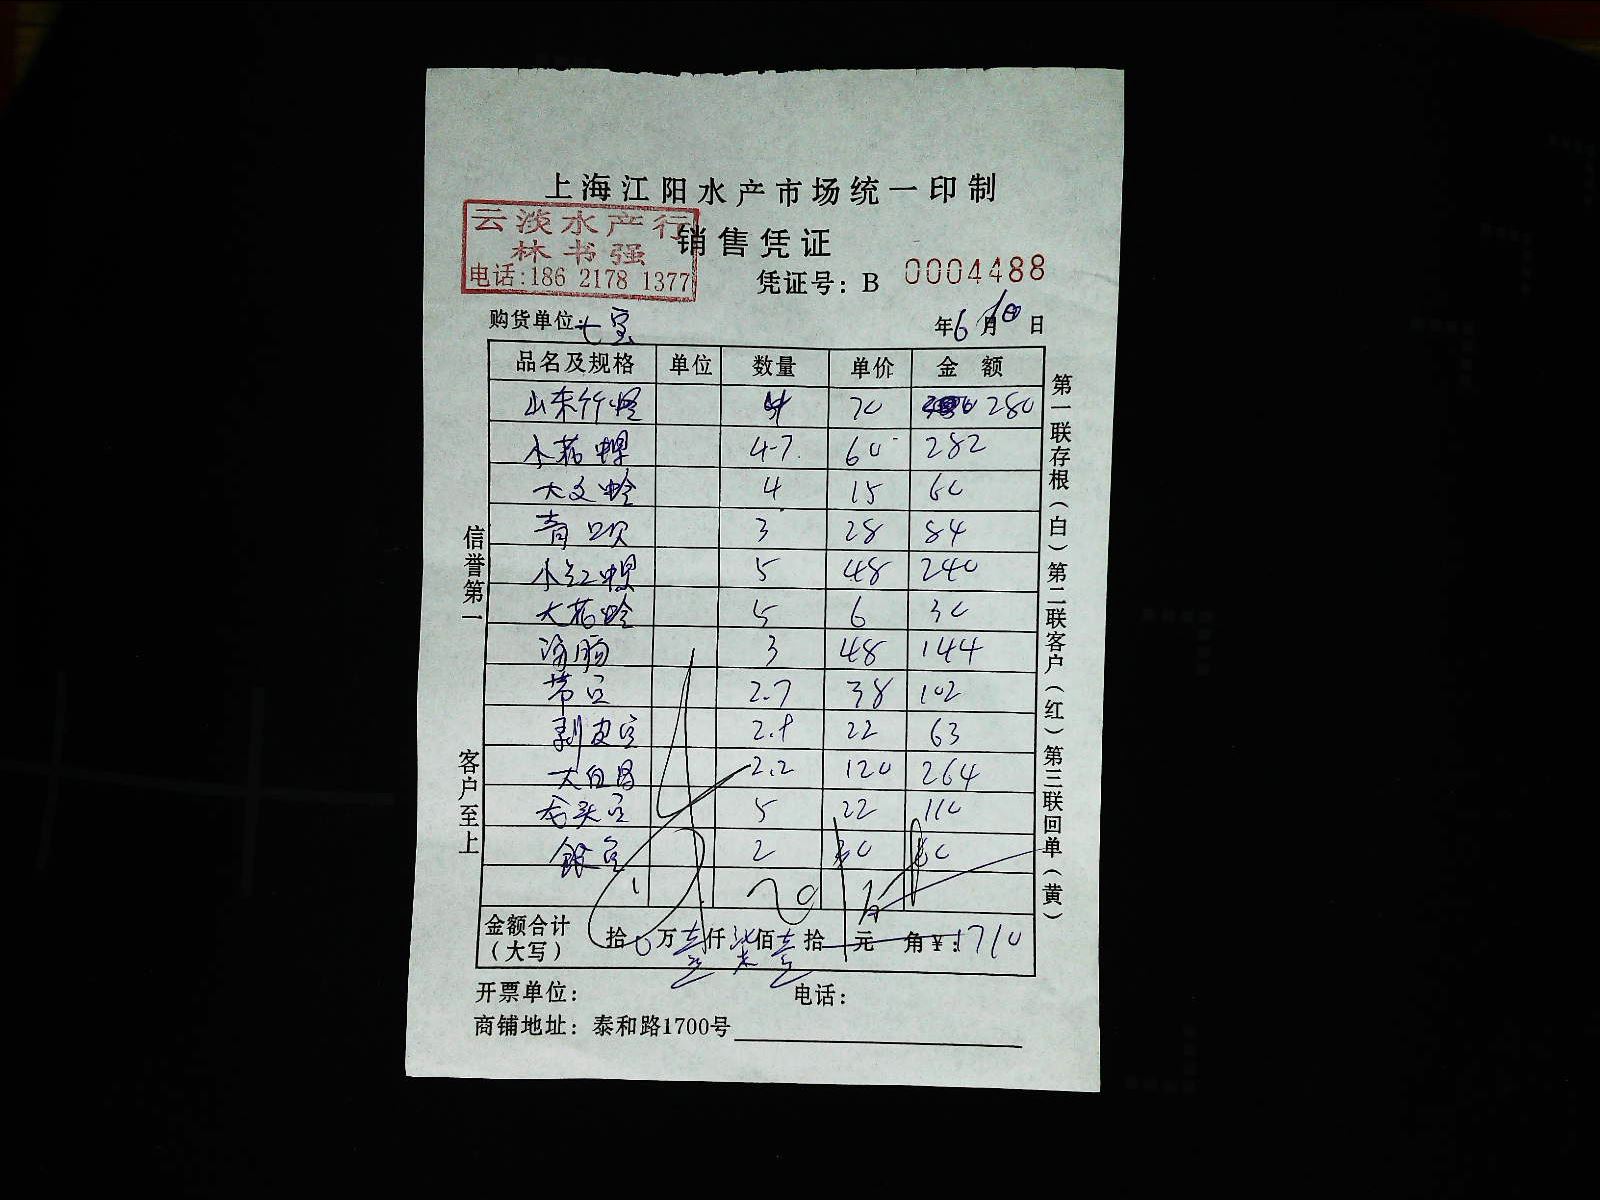 上海江阳水产市场统一印制
云淡水产行
林书强
电话:186 2178 1377
销售凭证
凭证号: B 0004488
购货单位: 七宝 年6月10日
品名及规格 单位 数量 单价 金额
山东竹蛏 4 70 280
小花螺 4.7 60 282
大文蛤 4 15 60
青口贝 3 28 84
小红螺 5 48 240
大花蛤 5 6 30
海肠 3 48 144
节 2.7 38 102
剥皮 22 63
大 2.2 120 264
龙头 5 22 110
银 2
金额合计
(大写) 拾0万壹仟柒佰壹拾 元 角¥:1710
开票单位: 电话:
商铺地址: 泰和路1700号
信誉第一
客户至上
第一联存根(白)第二联客户(红)第三联回单(黄)